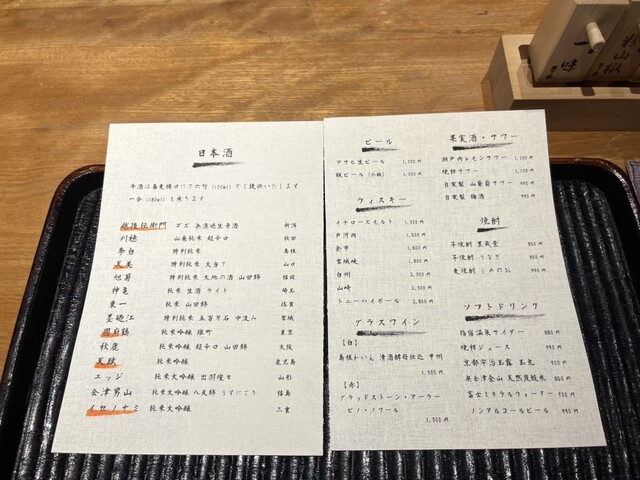 日本酒
冷酒は蕎麦猪口にて六勺(100ml)でご提供いたします
一合(180ml)も承ります
無濾過生原酒 新潟
刈穂 山廃純米 超辛口 秋田
李白 特別純米 島根
特別純米 山口
旭菊 特別純米 大地の酒 山田錦 福岡
神亀 純米 生酒 ライト 埼玉
東一 純米 山田錦 佐賀
墨廼江 特別純米 五百万石 中垂み 宮城
純米吟醸 雄町 東京
秋鹿 純米吟醸 超辛口 山田錦 大阪
純米吟醸 鹿児島
エッジ 純米大吟醸 出羽燦々 山形
会津男山 純米大吟醸 八反錦 うすにごり 福島
イセノナミ 純米大吟醸 三重
ビール
アサヒ生ビール 1,000円
瓶ビール(小瓶) 1,000円
ウィスキー
イチローズモルト 1,300円
戸河内 1,300円
余市 1,800円
宮城峡 1,800円
白州 2,300円
山崎 2,300円
トニーハイボール 2,800円
グラスワイン
【白】
島根わいん 清酒酵母仕込 甲州
1,300円
【赤】
グラッドストーン・アーラー
ピノ・ノワール
1,500円
果実酒・サワー
瀬戸内レモンサワー 1,100円
晩柑サワー 1,100円
自家製 山葡萄サワー 990円
自家製 梅酒 990円
焼酎
芋焼酎
芋焼酎 うなぎ
麦焼酎
ソフトドリンク
指宿温泉サイダー 880円
晩柑ジュース 990円
京都宇治玉露 玉兎 880円
奥会津金山 天然炭酸水 880円
富士ミネラルウォーター
ノンアルコールビール 990円
一味
粉山椒